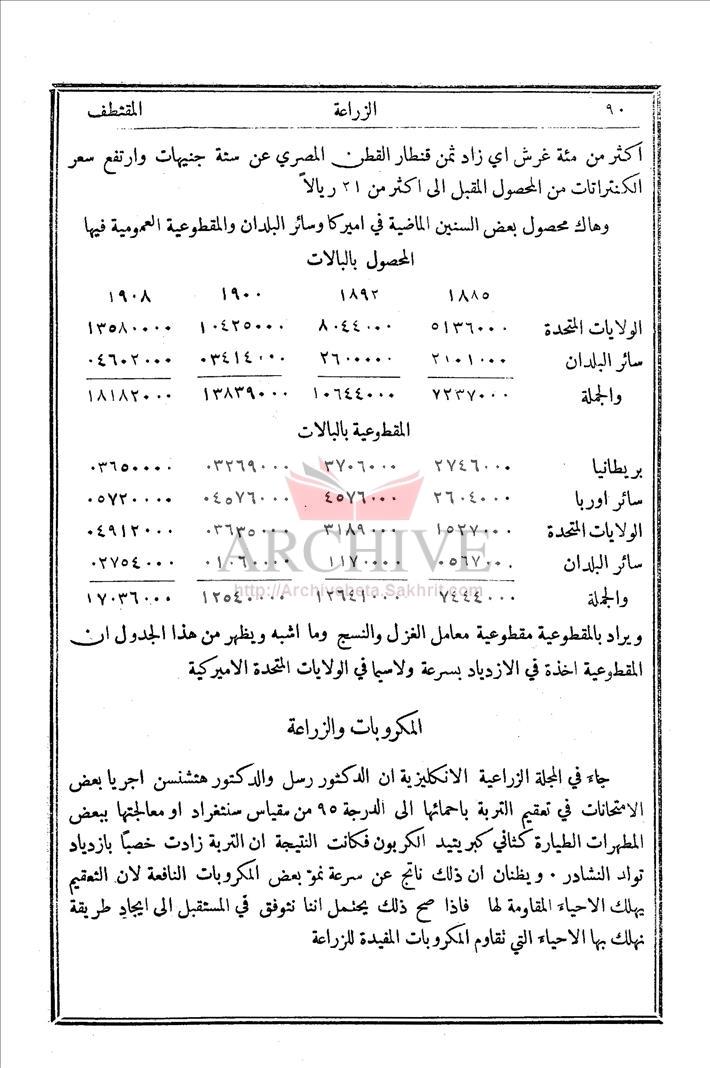 ٩٠ الزراعة المقتطف
اكثر من مئة غرش اي زاد ثمن قنطار القطن المصري عن ستة جنيهات وارتفع سعر
الكنتراتات من المحصول المقبل الى اكثر من ٢١ ريالاً
وهاك محصول بعض السنين الماضية في اميركا وسائر البلدان والمقطوعية العمومية فيها
المحصول بالبالات
١٨٨٥ ١٨٩٢ ١٩٠٠ ١٩٠٨
الولايات المتحدة ٥١٣٦٠٠٠ ٨٠٤٤٠٠٠ ١٠٤٢٥٠٠٠ ١٣٥٨٠٠٠٠
سائر البلدان ٢١٠١٠٠٠ ٢٦٠٠٠٠٠ ٠٣٤١٤٠٠٠ ٠٤٦٠٢٠٠٠
والجملة ٧٢٣٧٠٠٠ ١٠٦٤٤٠٠٠ ١٣٨٣٩٠٠٠ ١٨١٨٢٠٠٠
المقطوعية بالبالات
بريطانيا ٢٧٤٦٠٠٠ ٣٧٠٦٠٠٠ ٠٣٢٦٩٠٠٠ ٠٣٦٥٠٠٠٠
سائر اوربا ٢٦٠٤٠٠٠ ٤٥٧٦٠٠٠ ٠٤٥٧٦٠٠٠ ٠٥٧٢٠٠٠٠
الولايات المتحدة ١٥٢٧٠٠٠ ٣١٨٩٠٠٠ ٠٣٦٣٥٠٠٠ ٠٤٩١٢٠٠٠
سائر البلدان ٠٥٦٧٠٠٠ ١١٧٠٠٠٠ ٠١٠٦٠٠٠٠ ٠٢٧٥٤٠٠٠
والجملة ٧٤٤٤٠٠٠ ١٢٦٤١٠٠٠ ١٢٥٤٠٠٠٠ ١٧٠٣٦٠٠٠
ARCHIVE
http://Archivebeta.Sakhrit.com
ويراد بالمقطوعية مقطوعية معامل الغزل والنسج وما اشبه ويظهر من هذا الجدول ان
المقطوعية اخذة في الازدياد بسرعة ولاسيما في الولايات المتحدة الاميركية
المكروبات والزراعة
جاء في المجلة الزراعية الانكليزية ان الدكتور رسل والدكتور هتشنسن اجريا بعض
الامتحانات في تعقيم التربة باحمائها الى الدرجة ٩٥ من مقياس سنتغراد او معالجتها ببعض
المطهرات الطيارة كثاني كبريتيد الكربون فكانت النتيجة ان التربة زادت خصبًا بازدياد
تولد النشادر ٠ ويظنان ان ذلك ناتج عن سرعة نموّ بعض المكروبات النافعة لان التعقيم
يهلك الاحياء المقاومة لها فاذا صح ذلك يحتمل اننا نتوفق في المستقبل الى ايجاد طريقة
نهلك بها الاحياء التي تقاوم المكروبات المفيدة للزراعة